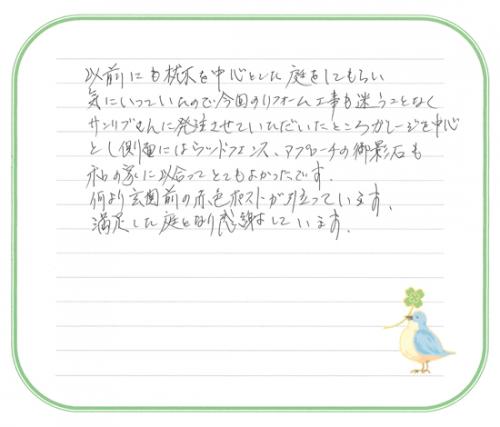 以前にも枕木を中心とした庭をしてもらい
気にいっていたので今回のリフォーム工事も迷うことなく
サンリブさんに発注させていただいたところガレージを中心
とし側面にはウッドフェンス、アプローチの御影石も
私の家に似合ってとてもよかったです.
何より玄関前の赤色ポストが目立っています.
満足した庭となり感謝しています.